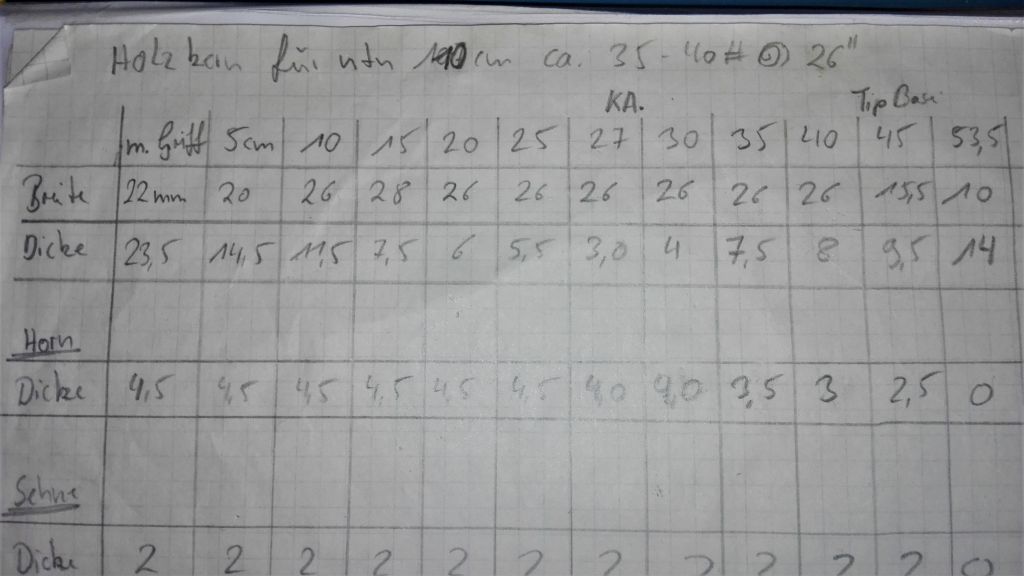 Holzkern für ntn cm ca. 35-40# @ 26"
KA. Tip Base
m. Griff 5cm 10 15 20 25 27 30 35 40 45 53,5
Breite 22mm 20 26 28 26 26 26 26 26 26 15,5 10
Dicke 23,5 14,5 11,5 7,5 6 5,5 3,0 4 7,5 8 9,5 14
Horn
Dicke 4,5 4,5 4,5 4,5 4,5 4,5 4,0 4,0 3,5 3 2,5 0
Sehne
Dicke 2 2 2 2 2 2 2 2 2 2 2 0